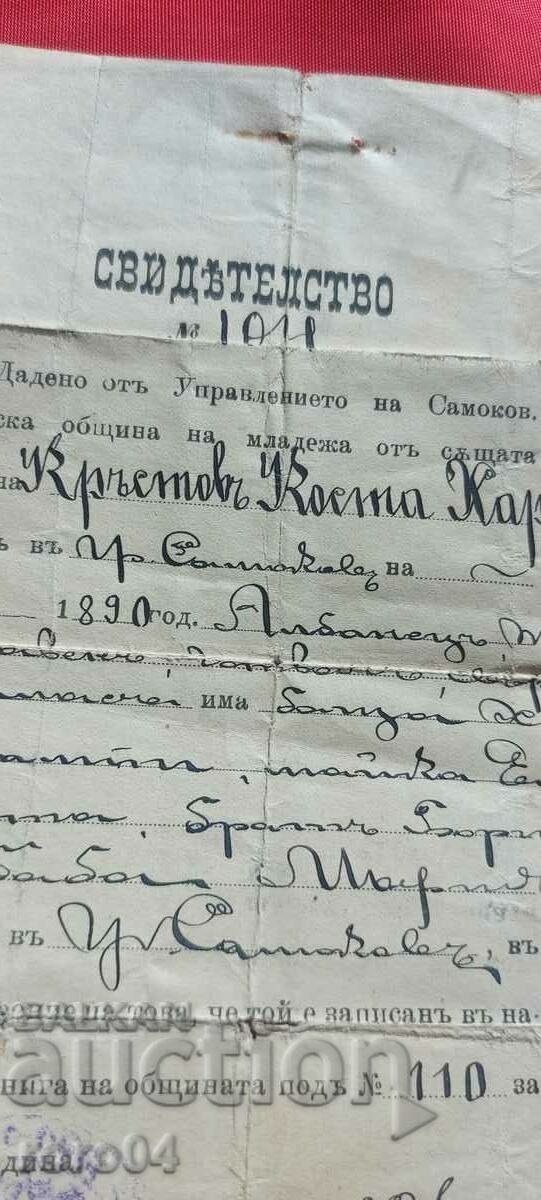 СВИДѢТЕЛСТВО
№ 1011
Дадено отъ Управлението на Самоков.
ска община на младежа отъ сѫщата
на Кръстовъ Коста Хар
ъ въ Гр Самоковъ на
1890 год. Албанецъ
има баща Х
майка Е
братъ Бори
баба Мария
въ Гр. Самоковъ, въ
това, че той е записанъ въ на-
нига на общината подъ № 110 за
дина.
BALKAN
auction
ako04